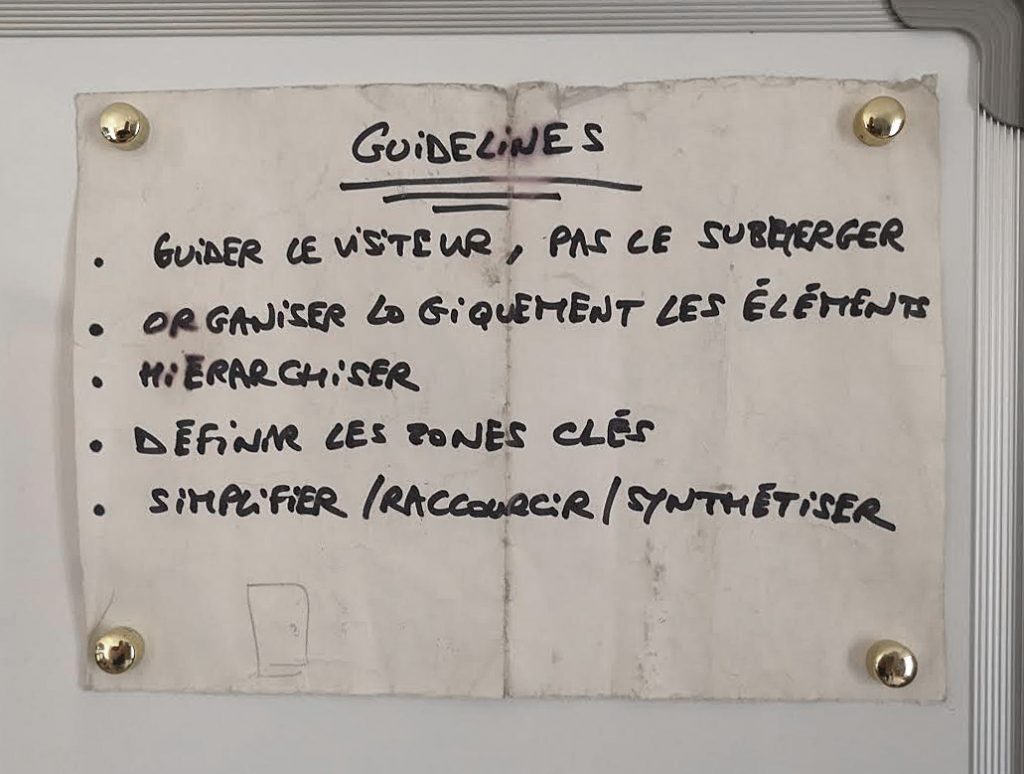 GUIDELINES
• GUIDER LE VISITEUR, PAS LE SUBMERGER
• ORGANISER LOGIQUEMENT LES ÉLÉMENTS
• HIÉRARCHISER
• DÉFINIR LES ZONES CLÉS
• SIMPLIFIER / RACCOURCIR / SYNTHÉTISER